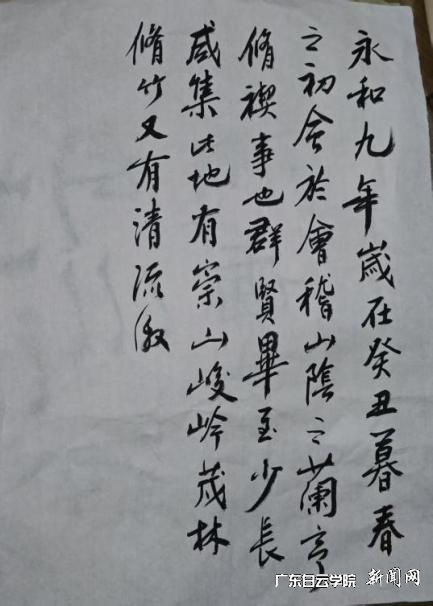 永和九年歲在癸丑暮春
之初会於會稽山陰之蘭亭
脩禊事也群賢畢至少長
咸集此地有崇山峻岭茂林
脩竹又有清流激
广东白云学院 新闻网